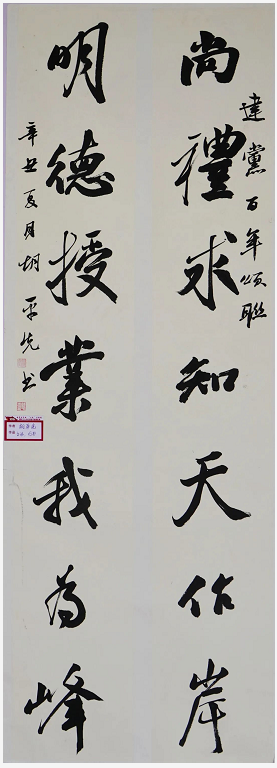 尚禮求知天作岸
建黨百年頌聯
明德授業我為峰
辛丑夏月胡平先书